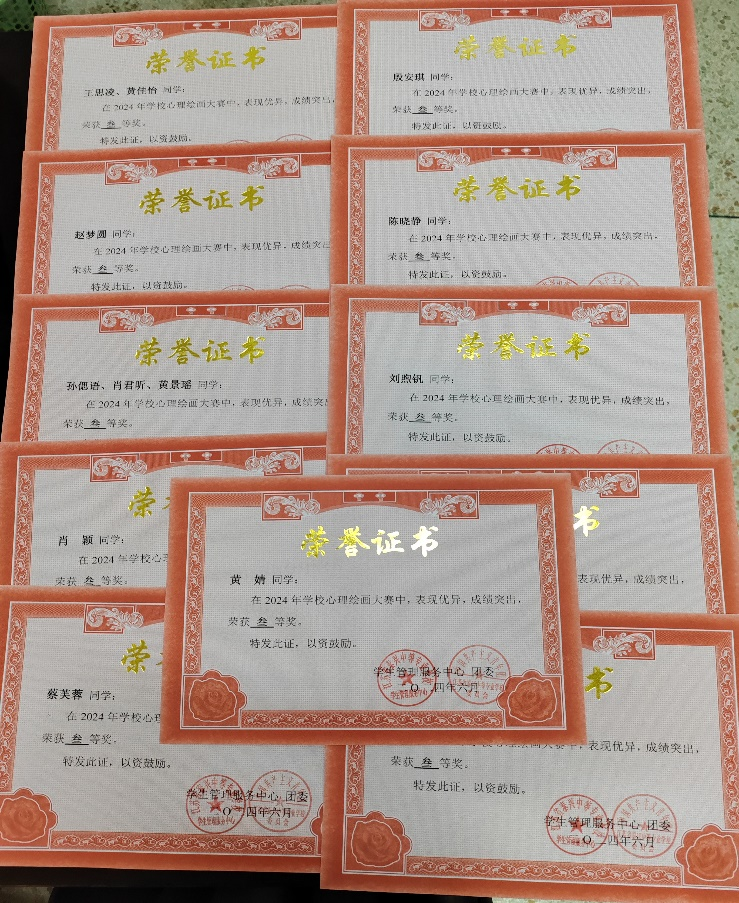 荣誉证书
王思凌、黄佳怡 同学：
在 2024 年学校心理绘画大赛中，表现优异，成绩突出，
荣获 叁 等奖。
特发此证，以资鼓励。
荣誉证书
殷安琪 同学：
在 2024 年学校心理绘画大赛中，表现优异，成绩突出，
荣获 叁 等奖。
特发此证，以资鼓励。
荣誉证书
赵梦圆 同学：
在 2024 年学校心理绘画大赛中，表现优异，成绩突出
荣获 叁 等奖。
特发此证，以资鼓励。
荣誉证书
陈晓静 同学：
在 2024 年学校心理绘画大赛中，表现优异，成绩突出，
荣获 叁 等奖。
特发此证，以资鼓励。
荣誉证书
孙偲语、肖君昕、黄景瑶 同学：
在 2024 年学校心理绘画大赛中，表现优异，成绩突出
荣获 叁 等奖。
荣誉证书
刘煦钒 同学：
在 2024 年学校心理绘画大赛中，表现优异，成绩突出，
荣获 叁 等奖。
特发此证，以资鼓励。
荣
肖 颖 同学：
在 2024 年学校
荣获 叁 等奖
书
表现优异，成绩突出，
荣誉证书
黄 婧 同学：
在 2024 年学校心理绘画大赛中，表现优异，成绩突出，
荣获 叁 等奖。
特发此证，以资鼓励。
学生管理服务中心 团委
四年六月
荣
蔡芙蓉 同学：
在 2024 年学校心理
荣获 叁 等奖。
特发此证，以资鼓励。
学生管理服务中心 团委
〇一四年六月
书
表现优异，成绩突出，
荣获 叁 等奖。
特发此证，以资鼓励。
学生管理服务中心 团委
〇二四年六月